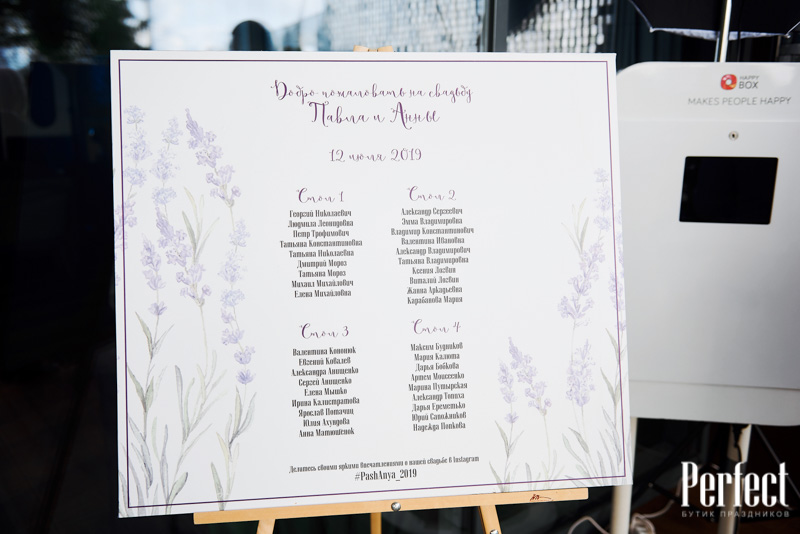 Добро пожаловать на свадьбу
Павла и Анны
12 июля 2019
Стол 1
Георгий Николаевич
Людмила Леонидовна
Петр Трофимович
Татьяна Константиновна
Татьяна Николаевна
Дмитрий Мороз
Татьяна Мороз
Михаил Михайлович
Елена Михайловна
Стол 2
Александр Сергеевич
Эмма Владимировна
Владимир Константинович
Валентина Ивановна
Александр Владимирович
Татьяна Владимировна
Ксения Лягвин
Виталий Лягвин
Жанна Аркадьевна
Карабанова Мария
Стол 3
Валентина Кононюк
Евгений Ковалев
Александра Анищенко
Сергей Анищенко
Елена Мышко
Ирина Калистратова
Ярослав Потапчиц
Юлия Ахундова
Анна Матюшенок
Стол 4
Максим Будников
Мария Калюта
Дарья Бобкова
Артем Моисеенко
Марина Путырская
Александр Топиха
Дарья Ереметько
Юрий Сапожников
Надежда Попкова
Делитесь своими яркими впечатлениями о нашей свадьбе в Instagram
#PashAnya_2019
HAPPY
BOX
MAKES PEOPLE HAPPY
Perfect
БУТИК ПРАЗДНИКОВ